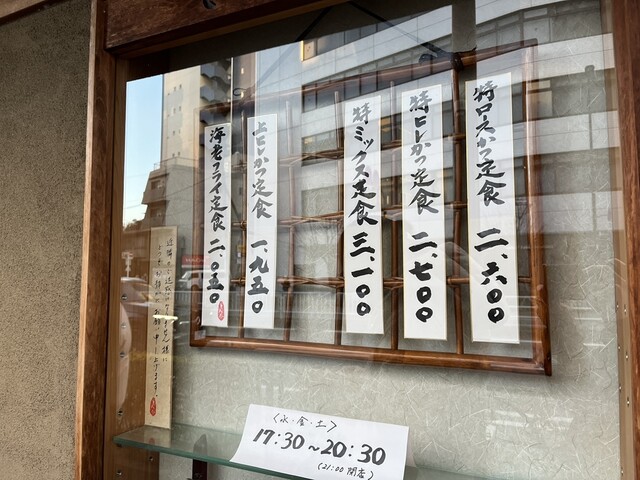 特ロースかつ定食 二、六〇〇
特ヒレかつ定食 二、七〇〇
特ミックス定食 三、一〇〇
上ヒレかつ定食 一、九五〇
海老フライ定食 二、〇五〇
(水・金・土)
17:30～20:30
(21:00 閉店)